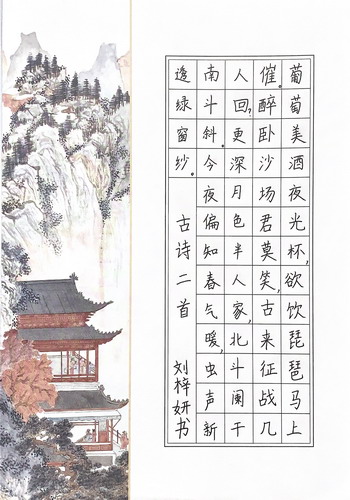 葡萄美酒夜光杯，欲饮琵琶马上
催。醉卧沙场君莫笑，古来征战几
人回，更深月色半人家，北斗阑干
南斗斜。今夜偏知春气暖，虫声新
透绿窗纱。
古诗二首
刘梓妍书